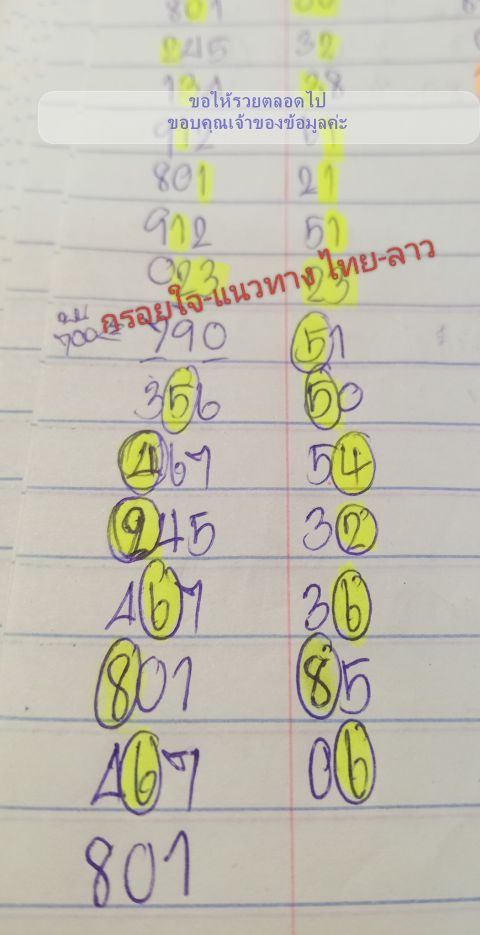 801
245 32
134 38
ขอให้รวยตลอดไป
ขอบคุณเจ้าของข้อมูลค่ะ
912
801 21
912 51
023 23
กรอยใจ-แนวทาง ไทย-ลาว
790 51
356 50
467 54
245 32
467 36
801 85
467 06
801